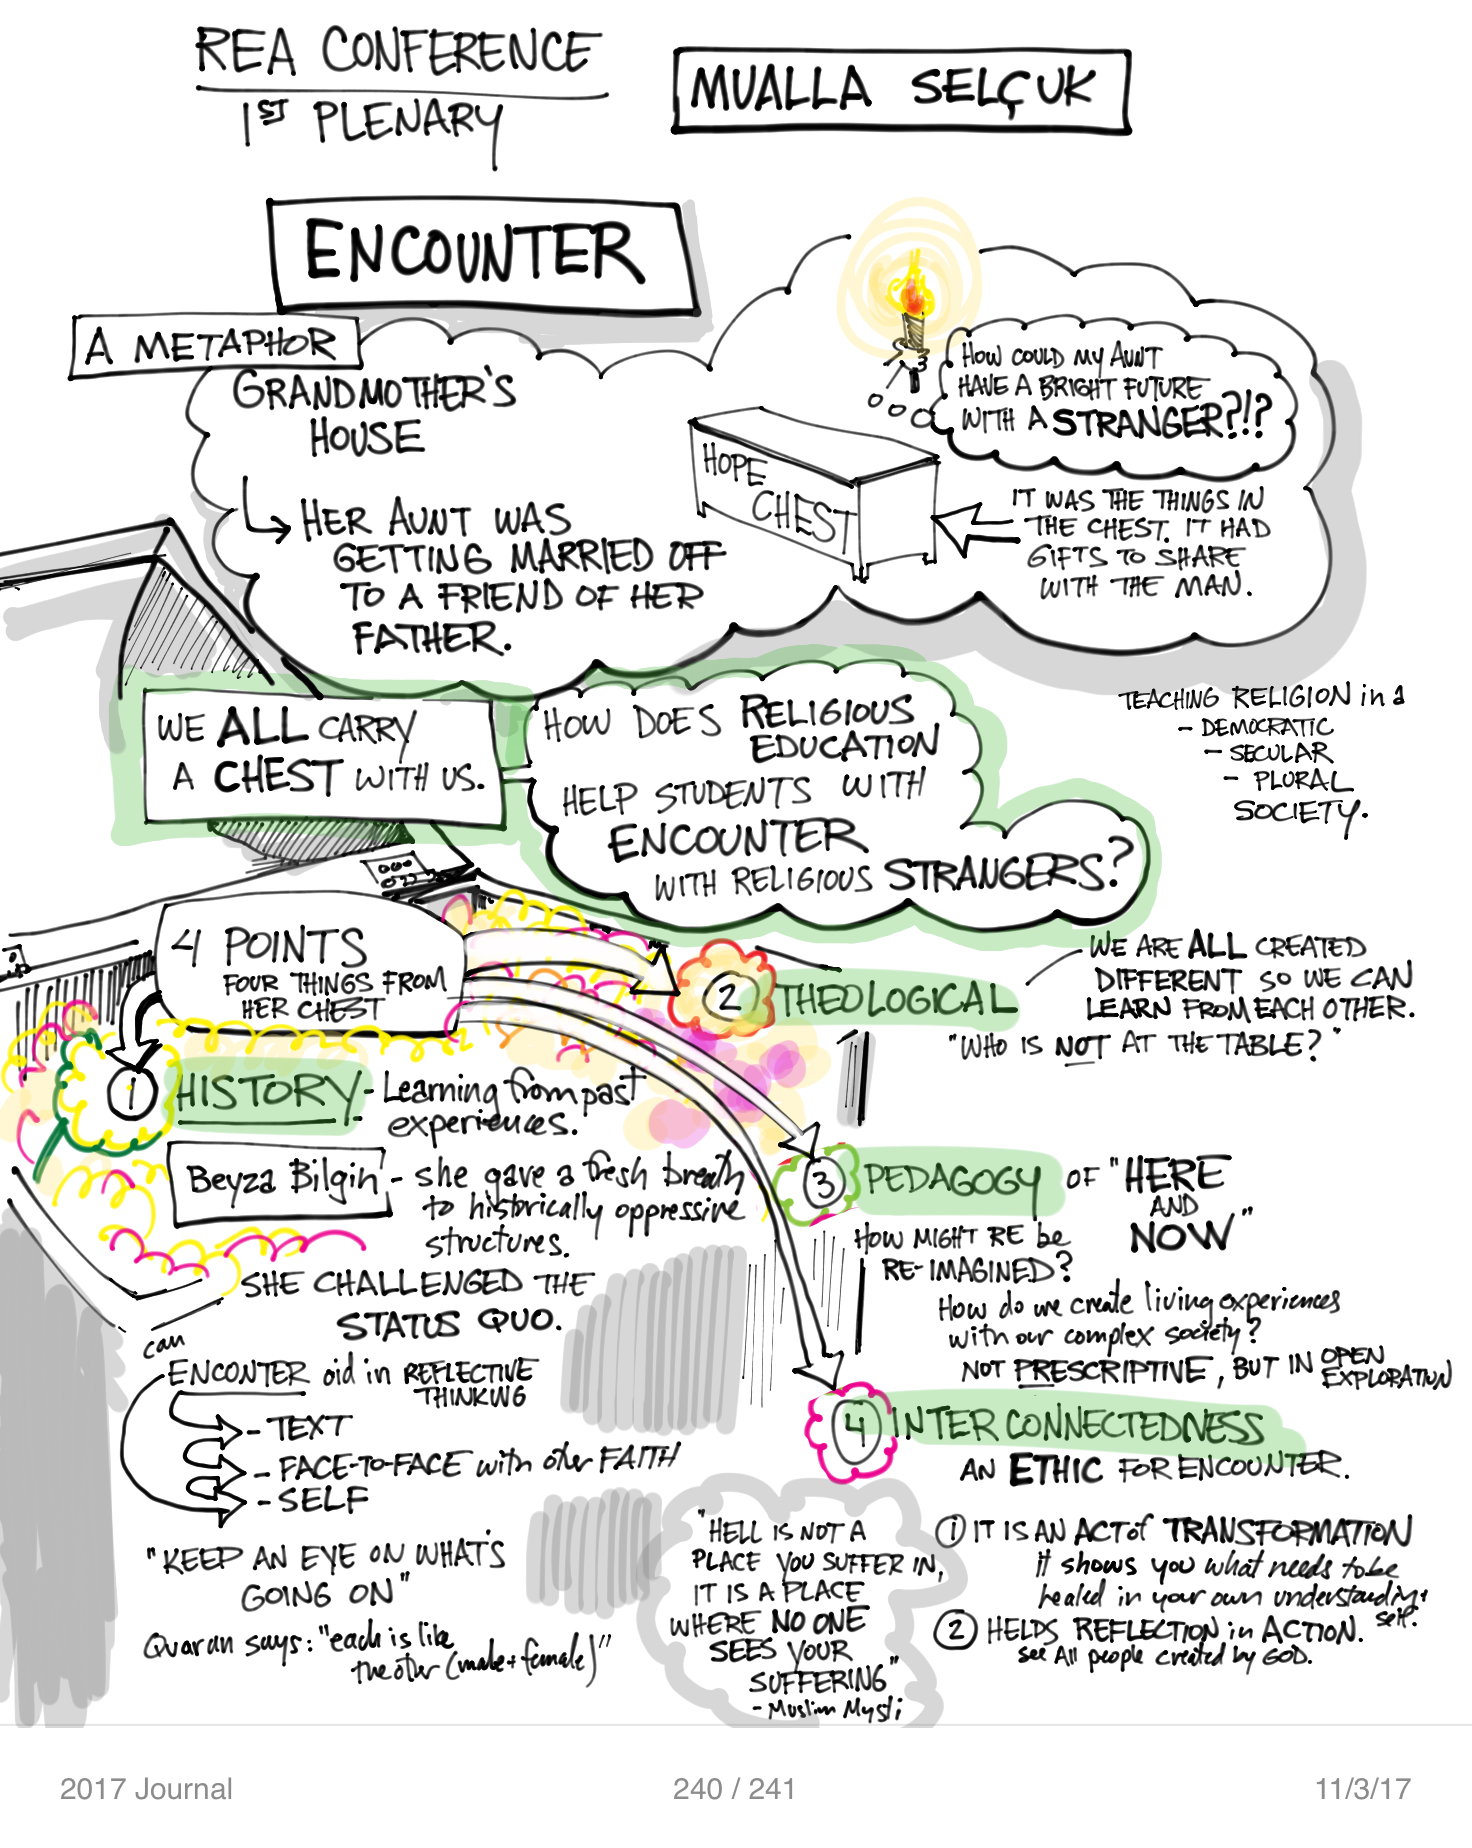 REA CONFERENCE
1ST PLENARY
MUALLA SELÇUK
ENCOUNTER
A METAPHOR
GRANDMOTHER'S
HOUSE
HER AUNT WAS
GETTING MARRIED OFF
TO A FRIEND OF HER
FATHER.
HOW COULD MY AUNT
HAVE A BRIGHT FUTURE
WITH A STRANGER?!?
HOPE
CHEST
IT WAS THE THINGS IN
THE CHEST. IT HAD
GIFTS TO SHARE
WITH THE MAN.
WE ALL CARRY
A CHEST WITH US.
HOW DOES RELIGIOUS
EDUCATION
HELP STUDENTS WITH
ENCOUNTER
WITH RELIGIOUS STRANGERS?
TEACHING RELIGION in a
- DEMOCRATIC
- SECULAR
- PLURAL
SOCIETY.
4 POINTS
FOUR THINGS FROM
HER CHEST
1 HISTORY - Learning from past
experiences.
Beyza Bilgin - she gave a fresh breath
to historically oppressive
structures.
SHE CHALLENGED THE
STATUS QUO.
can
ENCONTER aid in REFLECTIVE
THINKING
- TEXT
- FACE-TO-FACE with other FAITH
- SELF
"KEEP AN EYE ON WHAT'S
GOING ON"
Quaran says: "each is like
the other (male + female)"
2 THEOLOGICAL
WE ARE ALL CREATED
DIFFERENT SO WE CAN
LEARN FROM EACH OTHER.
"WHO IS NOT AT THE TABLE?"
3 PEDAGOGY OF "HERE
AND
NOW"
HOW MIGHT RE be
RE-IMAGINED?
How do we create living experiences
with our complex society?
NOT PRESCRIPTIVE, BUT IN OPEN
EXPLORATION
4 INTERCONNECTEDNESS
AN ETHIC FOR ENCOUNTER.
1 IT IS AN ACT of TRANSFORMATION
It shows you what needs to be
healed in your own understanding +
self.
2 HELPS REFLECTION in ACTION.
see All people created by GOD.
"HELL IS NOT A
PLACE YOU SUFFER IN,
IT IS A PLACE
WHERE NO ONE
SEES YOUR
SUFFERING"
- Muslim Mysti
2017 Journal
240 / 241
11/3/17